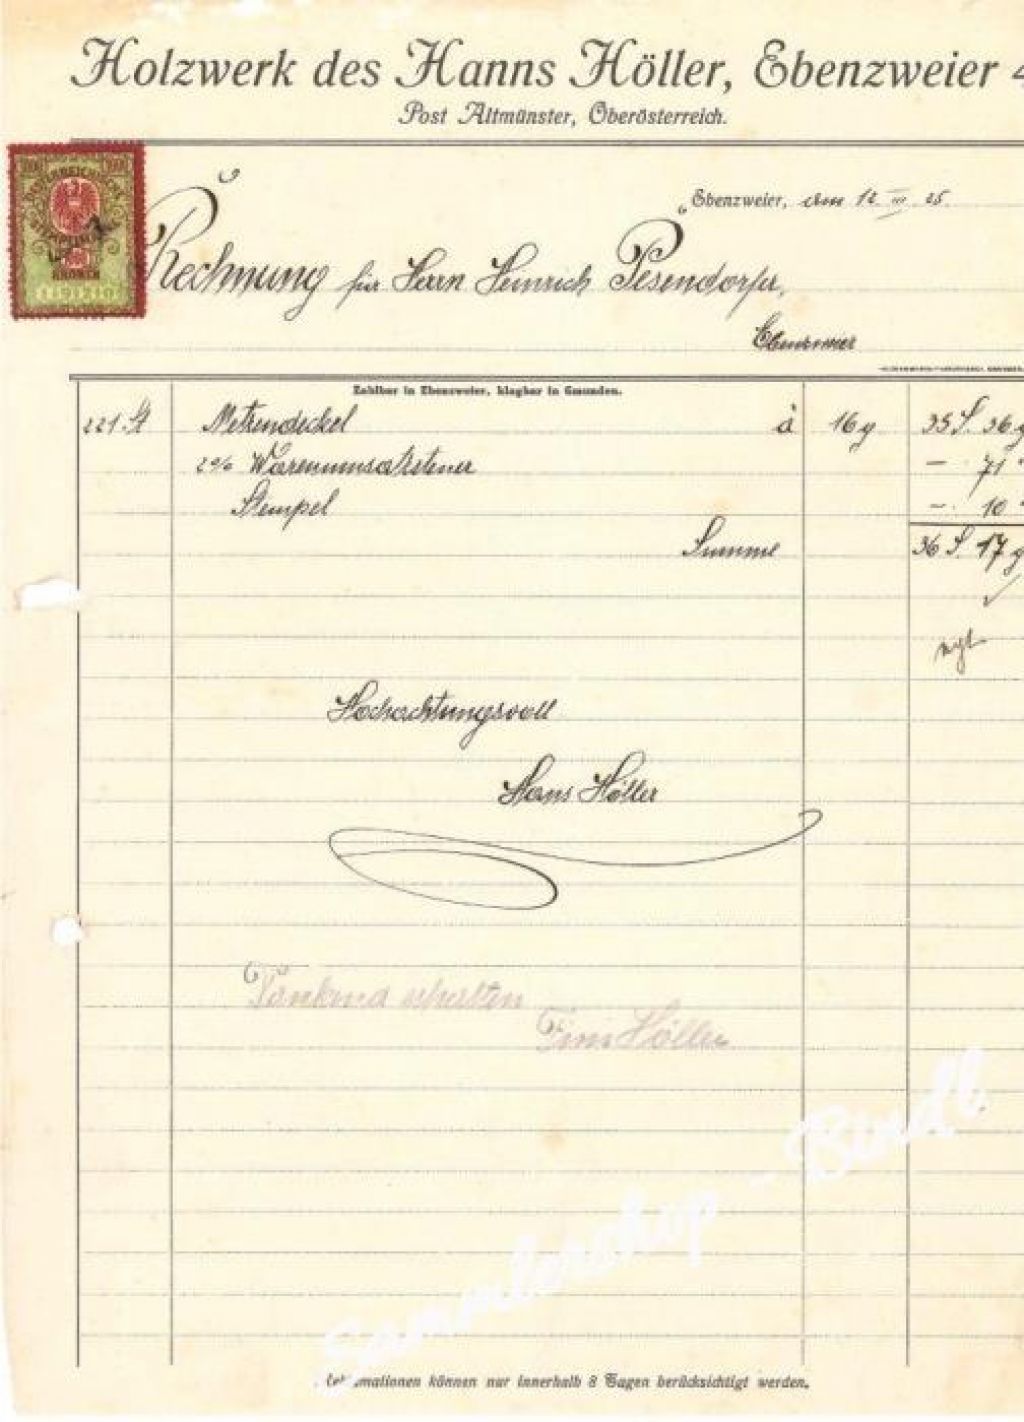 Holzwerk des Hanns Höller, Ebenzweier 4
Post Altmünster, Oberösterreich.
Ebenzweier, den 12 III 25.
Rechnung für Herrn Heinrich Pesendorfer,
Ebenzweier
Zahlbar in Ebenzweier, klagbar in Gmunden.
221 St Metzendeckel à 16 g 35 S. 36 g
2% Warenumsatzsteuer – 71 "
Stempel – 10 "
Summe 36 S. 17 g
Hochachtungsvoll
Hans Höller
Dankend erhalten
Fini Höller
Sammlershop - Bindl
Reklamationen können nur innerhalb 8 Tagen berücksichtigt werden.